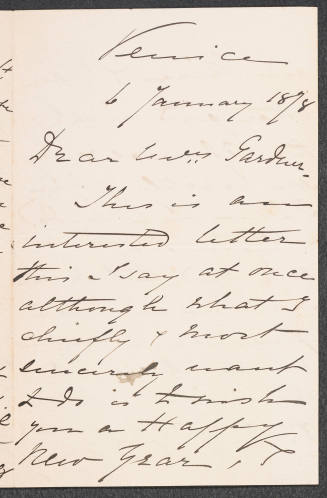 Venice
6 January 1878
Dear Mrs. Gardner.
This is an
interested letter
this I say at once
although what I
chiefly & most
sincerely want
to do is to wish
you a Happy
New Year, &